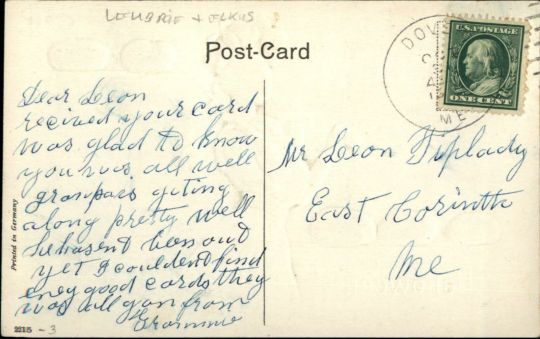 LEHBRIE + ELKUS
Post-Card
DOV
ME
U.S. POSTAGE
ONE CENT
Dear Leon
recived your card
was glad to know
you was all well
granpaes geting
along pretty well
he hasent been out
yet I couldent find
eney good cards they
was all gon from
Grammie
Mr Leon Tiplady
East Corinth
Me
Printed in Germany
2215 - 3